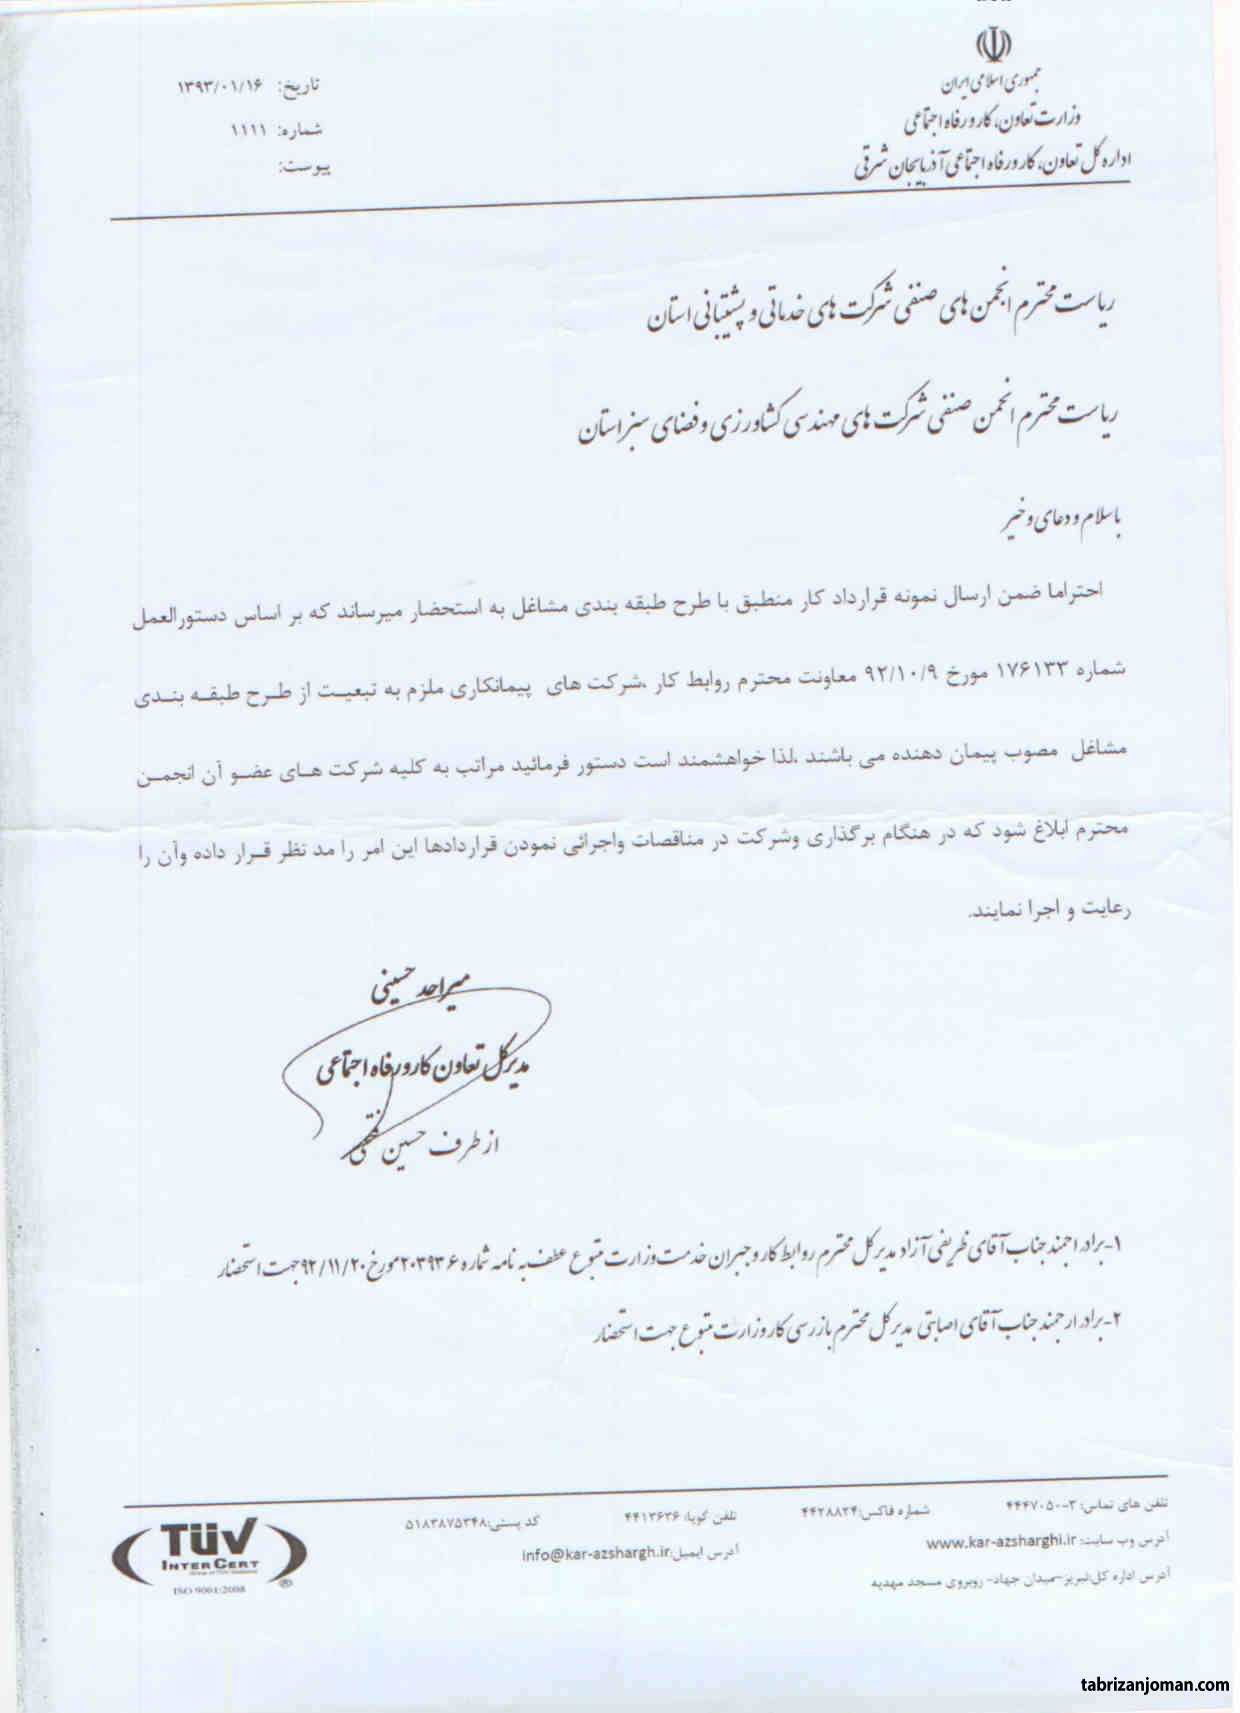 جمهوری اسلامی ایران
وزارت تعاون، کار و رفاه اجتماعی
اداره کل تعاون، کار و رفاه اجتماعی آذربایجان شرقی
تاریخ: ۱۳۹۳/۰۱/۱۶
شماره: ۱۱۱۱
پیوست:
ریاست محترم انجمن های صنفی شرکت های خدماتی و پشتیبانی استان
ریاست محترم انجمن صنفی شرکت های مهندسی کشاورزی و فضای سبز استان
باسلام و دعای و خیر
احتراما ضمن ارسال نمونه قرارداد کار منطبق با طرح طبقه بندی مشاغل به استحضار میرساند که بر اساس دستورالعمل
شماره ۱۷۶۱۳۳ مورخ ۹۲/۱۰/۹ معاونت محترم روابط کار ،شرکت های پیمانکاری ملزم به تبعیت از طرح طبقه بندی
مشاغل مصوب پیمان دهنده می باشند ،لذا خواهشمند است دستور فرمائید مراتب به کلیه شرکت های عضو آن انجمن
محترم ابلاغ شود که در هنگام برگذاری وشرکت در مناقصات واجرائی نمودن قراردادها این امر را مد نظر قرار داده وآن را
رعایت و اجرا نمایند.
میراحد حسینی
مدیرکل تعاون کار و رفاه اجتماعی
از طرف حسین
۱-برادر اجمند جناب آقای ظریفی آزاد مدیرکل محترم روابط کار و جبران خدمت وزارت متبوع عطف به نامه شماره ۲۰۳۹۳۶مورخ ۹۲/۱۱/۲۰جهت استحضار
۲-برادر ارجمند جناب آقای اصابتی مدیرکل محترم بازرسی کار وزارت متبوع جهت استحضار
تلفن های تماس: ۳-۴۴۴۷۰۵۰ شماره فاکس:۴۴۲۸۸۲۴ تلفن گویا: ۴۴۱۳۶۳۶ کد پستی:۵۱۸۳۸۷۵۳۴۸
آدرس وب سایت: www.kar-azsharghi.ir آدرس ایمیل:info@kar-azshargh.ir
آدرس اداره کل:تبریز-میدان جهاد- روبروی مسجد مهدیه
TÜV
INTERCERT
ISO 9001:2008
tabrizanjoman.com